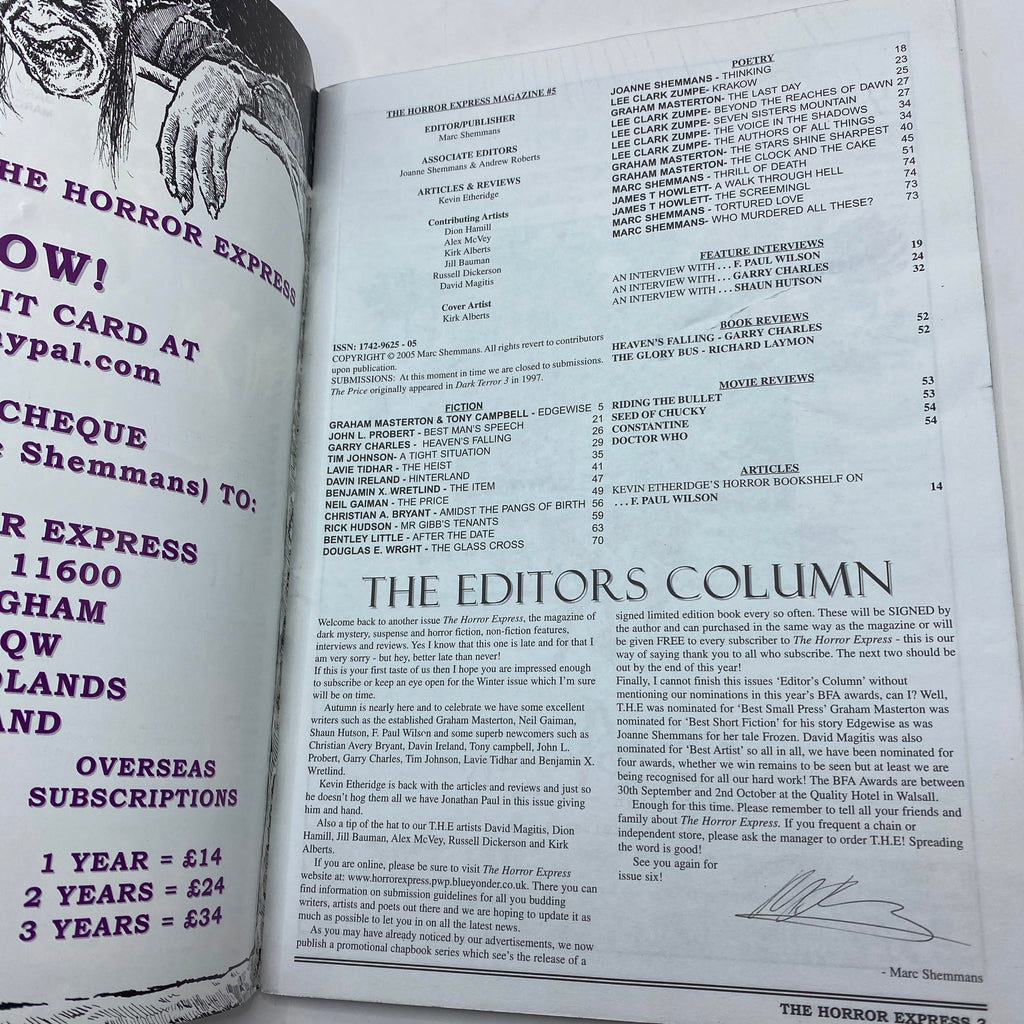 HE HORROR EXPRESS
OW!
IT CARD AT
aypal.com
CHEQUE
Shemmans) TO:
R EXPRESS
11600
GHAM
QW
LANDS
AND
OVERSEAS
SUBSCRIPTIONS
1 YEAR = £14
2 YEARS = £24
3 YEARS = £34
THE HORROR EXPRESS MAGAZINE #5
EDITOR/PUBLISHER
Marc Shemmans
ASSOCIATE EDITORS
Joanne Shemmans & Andrew Roberts
ARTICLES & REVIEWS
Kevin Etheridge
Contributing Artists
Dion Hamill
Alex McVey
Kirk Alberts
Jill Bauman
Russell Dickerson
David Magitis
Cover Artist
Kirk Alberts
ISSN: 1742-9625 - 05
COPYRIGHT © 2005 Marc Shemmans. All rights revert to contributors
upon publication.
SUBMISSIONS: At this moment in time we are closed to submissions.
The Price originally appeared in Dark Terror 3 in 1997.
FICTION
GRAHAM MASTERTON & TONY CAMPBELL - EDGEWISE 5
JOHN L. PROBERT - BEST MAN'S SPEECH 21
GARRY CHARLES - HEAVEN'S FALLING 26
TIM JOHNSON- A TIGHT SITUATION 29
LAVIE TIDHAR - THE HEIST 35
DAVIN IRELAND - HINTERLAND 41
BENJAMIN X. WRETLIND - THE ITEM 47
NEIL GAIMAN - THE PRICE 49
CHRISTIAN A. BRYANT - AMIDST THE PANGS OF BIRTH 56
RICK HUDSON - MR GIBB'S TENANTS 59
BENTLEY LITTLE - AFTER THE DATE 63
DOUGLAS E. WRGHT - THE GLASS CROSS 70
POETRY
JOANNE SHEMMANS - THINKING 18
LEE CLARK ZUMPE- KRAKOW 23
GRAHAM MASTERTON- THE LAST DAY 25
LEE CLARK ZUMPE- BEYOND THE REACHES OF DAWN 27
LEE CLARK ZUMPE- SEVEN SISTERS MOUNTAIN 27
LEE CLARK ZUMPE- THE VOICE IN THE SHADOWS 34
LEE CLARK ZUMPE- THE AUTHORS OF ALL THINGS 34
GRAHAM MASTERTON- THE STARS SHINE SHARPEST 40
GRAHAM MASTERTON- THE CLOCK AND THE CAKE 45
MARC SHEMMANS - THRILL OF DEATH 51
JAMES T HOWLETT- A WALK THROUGH HELL 74
JAMES T HOWLETT- THE SCREEMINGL 74
MARC SHEMMANS - TORTURED LOVE 73
MARC SHEMMANS- WHO MURDERED ALL THESE? 73
FEATURE INTERVIEWS
AN INTERVIEW WITH . . . F. PAUL WILSON 19
AN INTERVIEW WITH . . . GARRY CHARLES 24
AN INTERVIEW WITH . . . SHAUN HUTSON 32
BOOK REVIEWS
HEAVEN'S FALLING - GARRY CHARLES 52
THE GLORY BUS - RICHARD LAYMON 52
MOVIE REVIEWS
RIDING THE BULLET 53
SEED OF CHUCKY 53
CONSTANTINE 54
DOCTOR WHO 54
ARTICLES
KEVIN ETHERIDGE'S HORROR BOOKSHELF ON
. . . F. PAUL WILSON 14
THE EDITORS COLUMN
Welcome back to another issue The Horror Express, the magazine of
dark mystery, suspense and horror fiction, non-fiction features,
interviews and reviews. Yes I know that this one is late and for that I
am very sorry - but hey, better late than never!
If this is your first taste of us then I hope you are impressed enough
to subscribe or keep an eye open for the Winter issue which I'm sure
will be on time.
Autumn is nearly here and to celebrate we have some excellent
writers such as the established Graham Masterton, Neil Gaiman,
Shaun Hutson, F. Paul Wilson and some superb newcomers such as
Christian Avery Bryant, Davin Ireland, Tony campbell, John L.
Probert, Garry Charles, Tim Johnson, Lavie Tidhar and Benjamin X.
Wretlind.
Kevin Etheridge is back with the articles and reviews and just so
he doesn't hog them all we have Jonathan Paul in this issue giving
him and hand.
Also a tip of the hat to our T.H.E artists David Magitis, Dion
Hamill, Jill Bauman, Alex McVey, Russell Dickerson and Kirk
Alberts.
If you are online, please be sure to visit The Horror Express
website at: www.horrorexpress.pwp.blueyonder.co.uk. There you can
find information on submission guidelines for all you budding
writers, artists and poets out there and we are hoping to update it as
much as possible to let you in on all the latest news.
As you may have already noticed by our advertisements, we now
publish a promotional chapbook series which see's the release of a
signed limited edition book every so often. These will be SIGNED by
the author and can purchased in the same way as the magazine or will
be given FREE to every subscriber to The Horror Express - this is our
way of saying thank you to all who subscribe. The next two should be
out by the end of this year!
Finally, I cannot finish this issues 'Editor's Column' without
mentioning our nominations in this year's BFA awards, can I? Well,
T.H.E was nominated for 'Best Small Press' Graham Masterton was
nominated for 'Best Short Fiction' for his story Edgewise as was
Joanne Shemmans for her tale Frozen. David Magitis was also
nominated for 'Best Artist' so all in all, we have been nominated for
four awards, whether we win remains to be seen but at least we are
being recognised for all our hard work! The BFA Awards are between
30th September and 2nd October at the Quality Hotel in Walsall.
Enough for this time. Please remember to tell all your friends and
family about The Horror Express. If you frequent a chain or
independent store, please ask the manager to order T.H.E! Spreading
the word is good!
See you again for
issue six!
- Marc Shemmans
THE HORROR EXPRESS